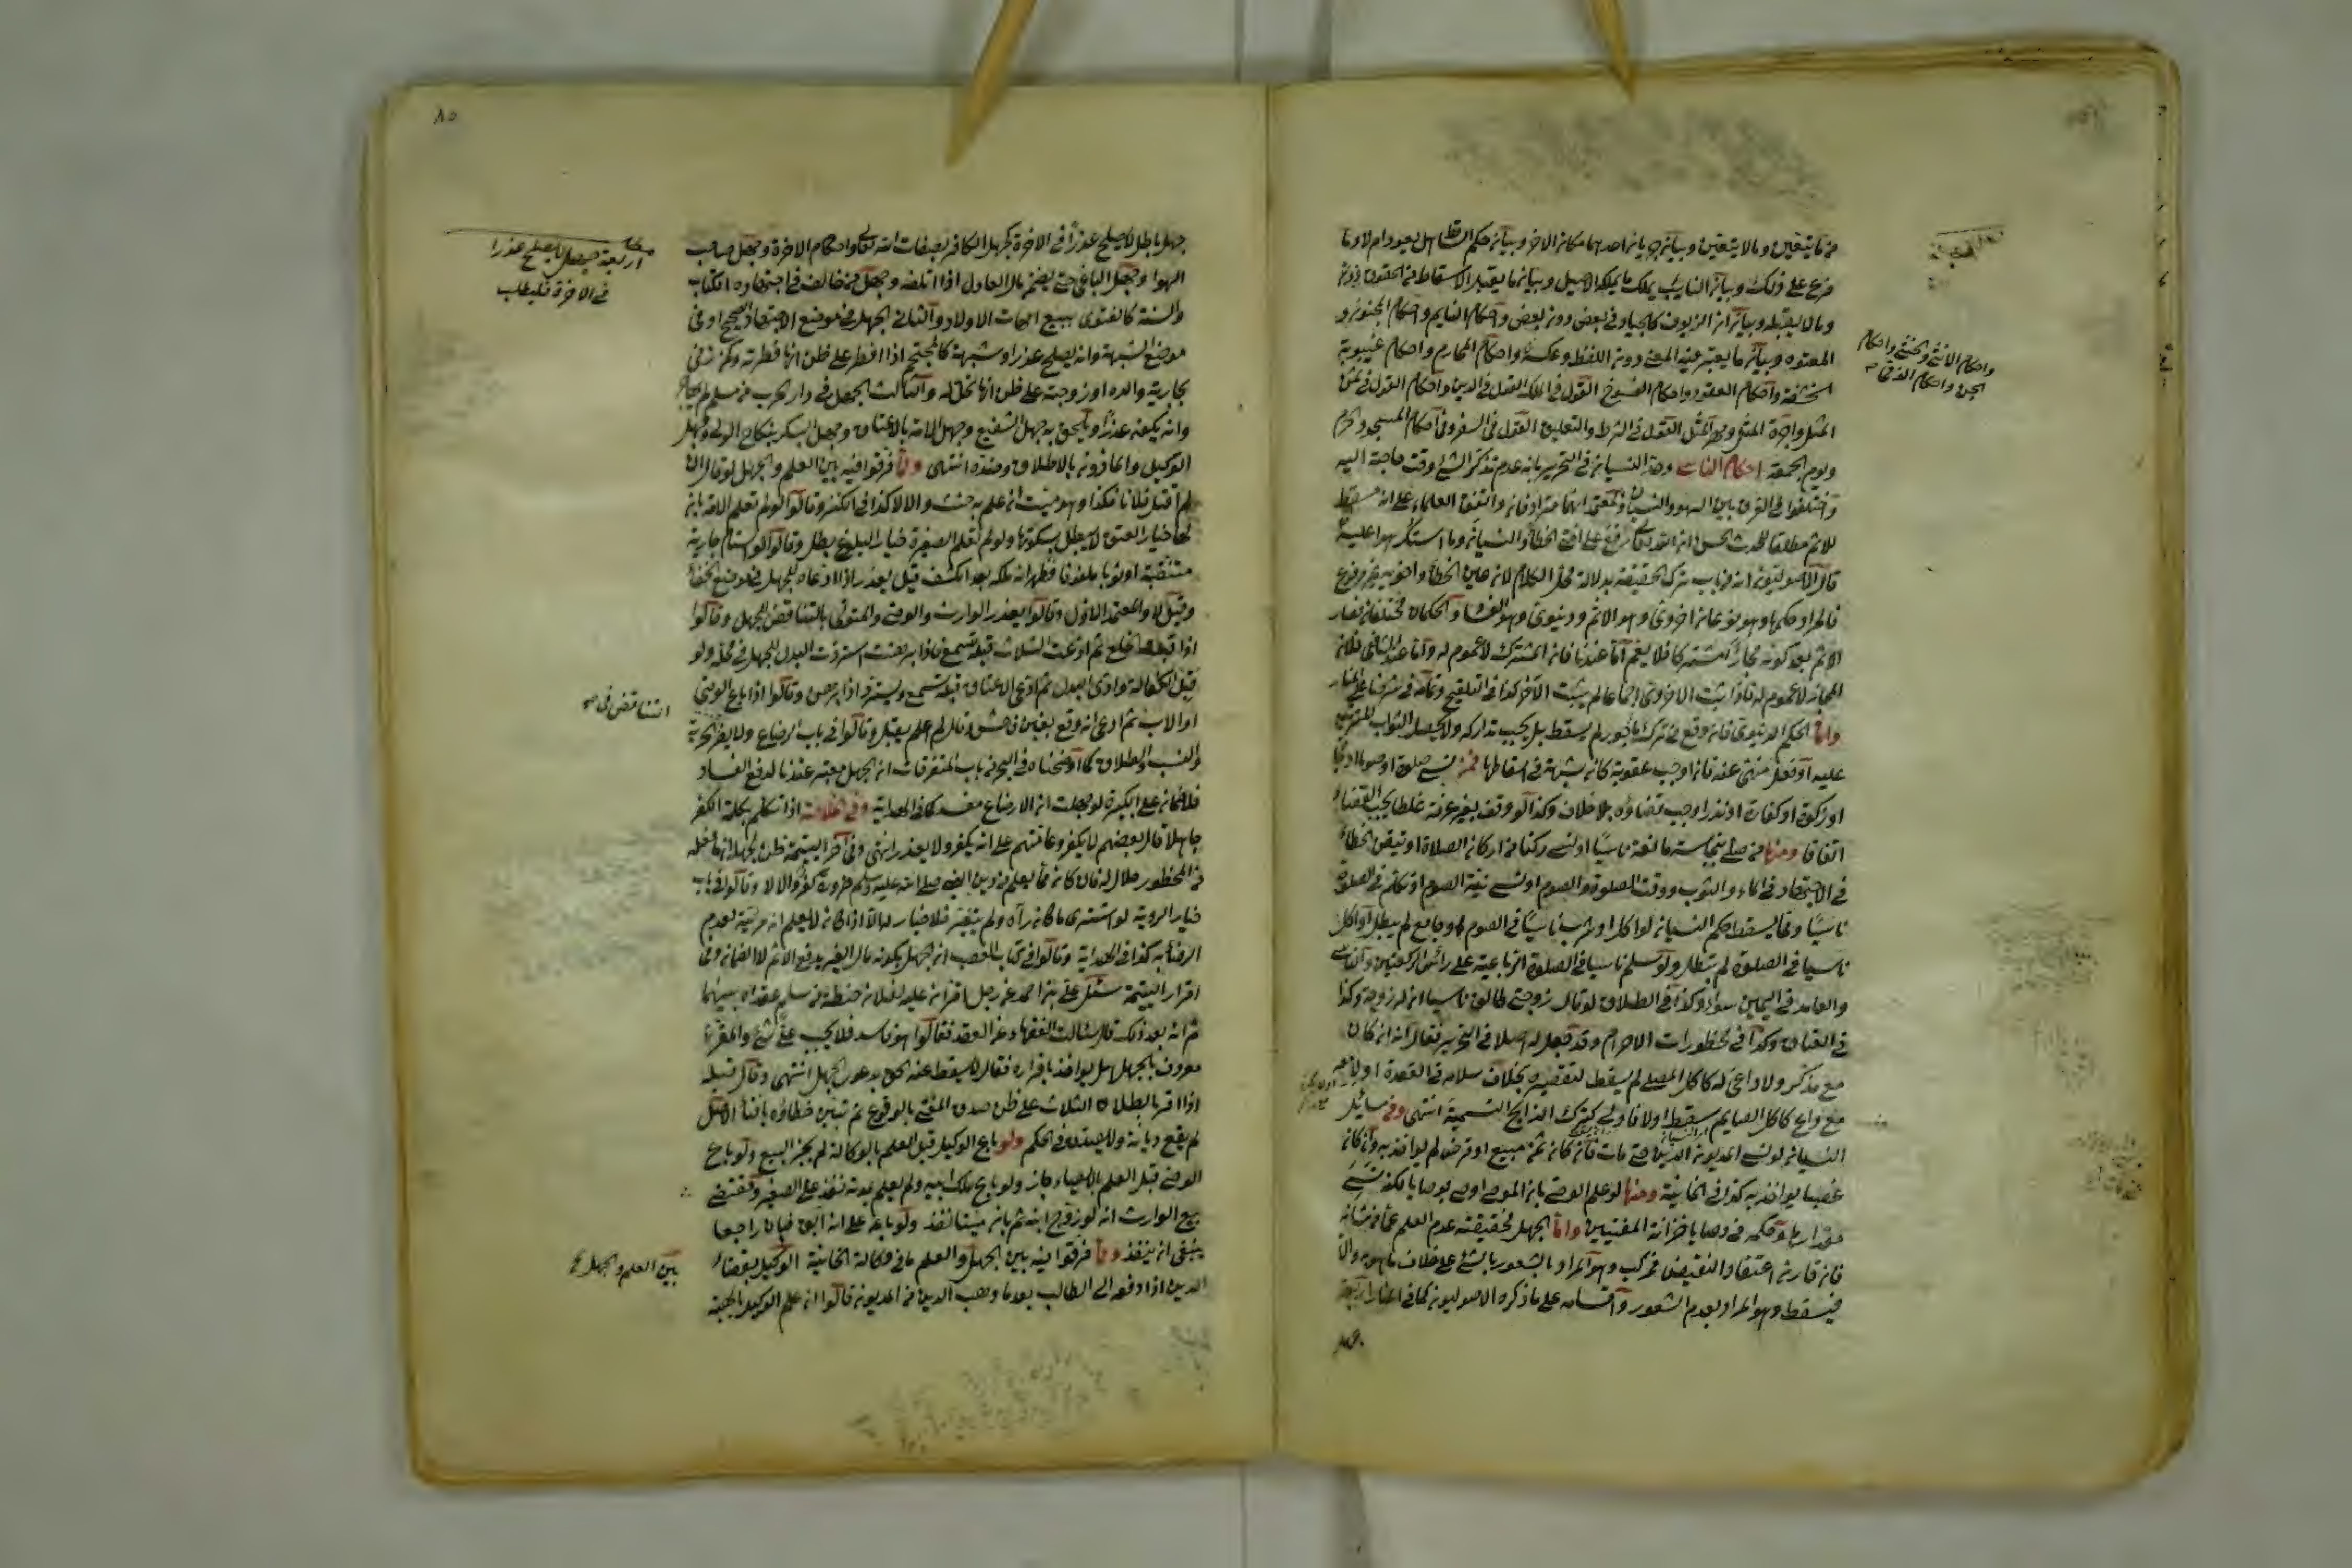 فيما يتعين وما لا يتعين وبيان جريان احدهما مكان الاخر وبيان حكم الساقط هل يعود ام لا وما
فرع على ذلك وبيان النايب يملك ما يملكه الاصيل وبيان ما يقبل الاسقاط من الحقوق
وما لا يقبله وبيان ان الزيوف كالجياد في بعض دون بعض واحكام النايم واحكام المجنون و
المعتوه وبيان ما يعتبر فيه المعنى دون اللفظ وعكسه واحكام المحارم واحكام غيبوبة
الحشفة واحكام العقود واحكام الفسوخ القول في الملك القول في الدين واحكام القول في ثمن
المثل واجرة المثل ومهر المثل القول في الشرط والتعليق القول في السفر وفي احكام المسجد والحرم
ويوم الجمعة احكام الناسي وحد النسيان في التحرير بانه عدم تذكر الشئ وقت حاجته اليه
واختلفوا في الفرق بين السهو والنسيان والمعتمد انهما مترادفان واتفق العلماء على انه مسقط
للاثم مطلقا للحديث الحسن ان الله تعالى رفع عن امتي الخطأ والنسيان وما استكرهوا عليه
قال الاصوليون انه من باب ترك الحقيقة بدلالة محل الكلام لان عين الخطأ واخويه غير مرفوع
فالمراد حكمها وهو نوعان اخروي وهو الاثم ودنيوي وهو الفساد والحكمان مختلفان فصار
الاثم بعد كونه مجازا مشتركا فلا يعم اما عندنا فلان المشترك لا عموم له واما عند الشافعي فلان
المجاز لا عموم له فاذا ثبت الاخروي اجماعا لم يثبت الاخر كذا في التلويح وتمامه في شرحنا على المنار
واما الحكم الدنيوي فان وقع في ترك مامور لم يسقط بل يجب تداركه ولا يحصل الثواب المترتب
عليه او فعل منهي عنه فان اوجب عقوبة كان شبهة في اسقاطها فمن نسي صلوة او صوما او حجا
او زكوة او كفارة او نذرا وجب قضاؤه بلا خلاف وكذا لو وقف بغير عرفة غلطا يجب القضاء
اتفاقا ومنها من صلى بنجاسة مانعة ناسيا او نسي ركنا من اركان الصلاة او تيقن الخطأ
في الاجتهاد في الماء والثوب ووقت الصلوة والصوم او نسي نية الصوم او تكلم في الصلوة
ناسيا ومما يسقط حكم النسيان لو اكل او شرب ناسيا في الصوم او جامع لم يبطل او اكل
ناسيا في الصلوة لم تبطل ولو سلم ناسيا في الصلوة الرباعية على رأس الركعتين والناسي
والعامد في اليمين سواء وكذا في الطلاق لو قال زوجتي طالق ناسيا ان له زوجة وكذا
في العتاق وكذا في محظورات الاحرام وقد جعل له اصلا في التحرير فقال انه ان كان
مع مذكر ولا داعي له كاكل المصلي لم يسقط لتقصيره بخلاف سلامه في القعدة
مع داع كاكل الصايم سقط اولا فاولى كترك الذابح التسمية انتهى وفي مسائل
النسيان لو نسي المديون الدين حتى مات فان كان ثمن مبيع او قرض لم يواخذ به وان كان
غصبا يواخذ به كذا في الخانية ومنها لو علم الوصي بان الموصي اوصى بوصايا لكنه نسي
مقدارها وحكمه في وصايا خزانة المفتيين واما الجهل فحقيقته عدم العلم عما من شانه
فان قارن اعتقاد النقيض فمركب وهو المراد بالشعور بالشئ على خلاف ما هو به والا
فبسيط وهو المراد بعدم الشعور واقسامه على ما ذكره الاصوليون كما في المنار اربعة
جهل
واحكام الانثى والخنثى واحكام
الجن واحكام الذمي
٨٥
جهل باطل لا يصلح عذرا في الاخرة كجهل الكافر بصفات الله تعالى واحكام الاخرة وجهل صاحب
الهوا وجهل الباغي حتى يضمن مال العادل اذا اتلفه وجهل من خالف في اجتهاده الكتاب
والسنة كالفتوى ببيع امهات الاولاد والثاني الجهل في موضع الاجتهاد الصحيح او في
موضع الشبهة وانه يصلح عذرا وشبهة كالمحتجم اذا افطر على ظن انها فطرته وكمن زنى
بجارية والده او زوجته على ظن انها تحل له والثالث الجهل في دار الحرب من مسلم لم يهاجر
وانه يكون عذرا ويلحق به جهل الشفيع وجهل الامة بالاعتاق وجهل البكر بنكاح الولي وجهل
الوكيل والماذون بالاطلاق وضده انتهى ومما فرقوا فيه بين العلم والجهل لو قال ان
لم اقتل فلانا فكذا وهو ميت ان علم به حنث والا لا كذا في الكنز وقالوا لو لم تعلم الامة بان
لها خيار العتق لا يبطل بسكوتها ولو لم تعلم الصغيرة خيار البلوغ بطل وقالوا لو استام جارية
متنقبة او ثوبا ملفوفا فظهر انه ملكه بعد الكشف قيل يعذر اذا ادعاه للجهل في موضع الخفا
وقيل لا والمعتمد الاول وقالوا يعذر الوارث والوصي والمتولي بالتناقض للجهل وقالوا
اذا قبلت الخلع ثم ادعت الثلاث قبله تسمع فاذا برهنت استردت البدل للجهل في محله ولو
قبل الكتابة وادى البدل ثم ادعى الاعتاق قبله تسمع ويسترد اذا برهن وقالوا اذا باع الوصي
او الاب ثم ادعى انه وقع بغبن فاحش وقال لم اعلم يقبل وقالوا في باب الرضاع ولا يضر
والنسب والطلاق كما اوضحناه في البحر في باب المتفرقات ان الجهل معتبر عندنا لدفع الفساد
فلا ضمان على الكبيرة لو جهلت ان الارضاع مفسد كما في الهداية وفي الخلاصة اذا تكلم بكلمة الكفر
جاهلا قال بعضهم لا يكفر وعامتهم على انه يكفر ولا يعذر انتهى وفي اخر اليتيمة ظن لجهله ان ما فعله
من المحظور حلال له فان كان مما يعلم من دين النبي صلى الله عليه وسلم ضرورة كفر والا لا وقالوا في باب
خيار الروية لو اشترى ما كان رآه ولم يتغير فلا خيار له الا اذا كان لا يعلم انه مرئيه لعدم
الرضا به كذا في الهداية وقالوا في كتاب الغصب ان جهل بكونه مال الغير يدفع الاثم لا الضمان وفي
اقرار اليتيمة سئل علي بن احمد عن رجل اقر ان عليه لفلان حنطة من سلم عقداه بينهما
ثم انه بعد ذلك قال سئلت الفقهاء عن العقد فقالوا هو فاسد فلا يجب علي شئ والمقر
معروف بالجهل هل يواخذ باقراره فقال لا يسقط عنه الحق بدعوى الجهل انتهى وقال قبله
اذا اقر بالطلاق الثلاث على ظن صدق المفتي بالوقوع ثم تبين خطاؤه بافتاء الاهل
لم يقع ديانة ولا يصدق في الحكم ولو باع الوكيل قبل العلم بالوكالة لم يجز البيع ولو باع
الوصي قبل العلم بالايصاء جاز ولو باع ملك ابيه ولم يعلم بموته نفذ على الصغير ومقتضى
بيع الوارث انه لو زوج ابنه ثم بان ميتا نفذ ولو باعه على انه آبق فبان راجعا
ينبغي ان ينفذ ومما فرقوا فيه بين الجهل والعلم ما في وكالة الخانية الوكيل بقضاء
الدين اذا دفعه الى الطالب بعدما وهب الدين من المديون قالوا ان علم الوكيل بالهبة
مطلب
اربعة جهل لا يصلح عذرا
في الاخرة فليطلب
التناقض في
بين العلم والجهل